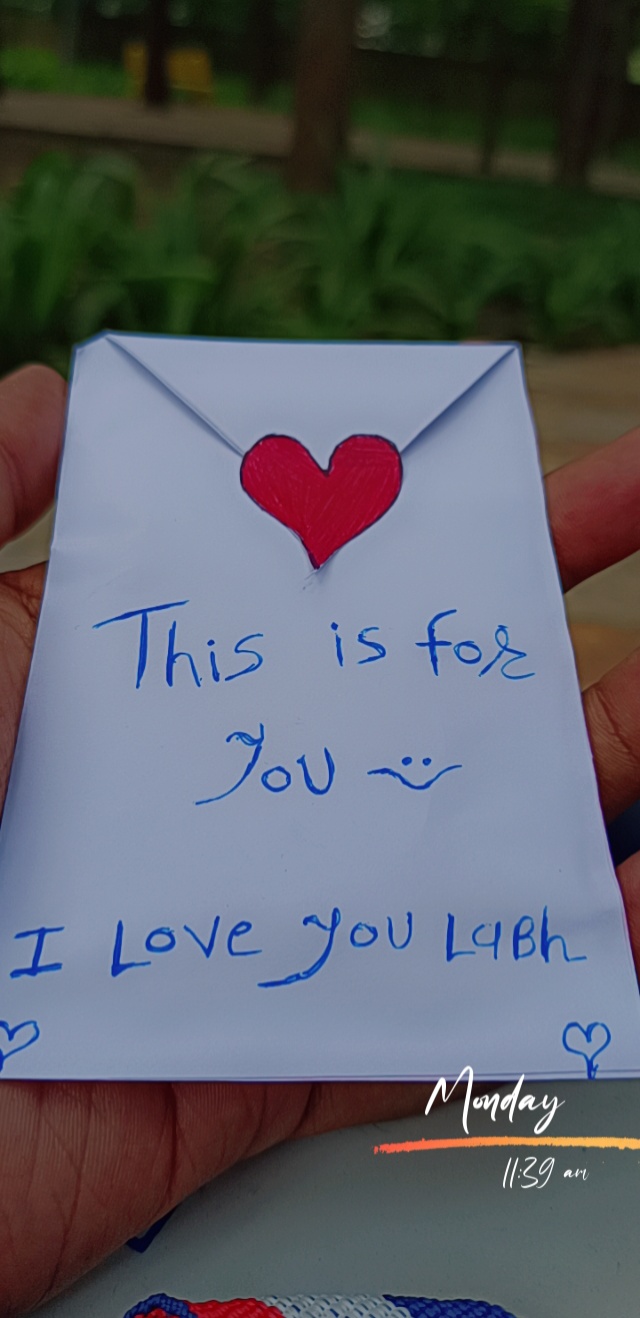 This is for
You
I Love you LaBh
Monday
11:39 am